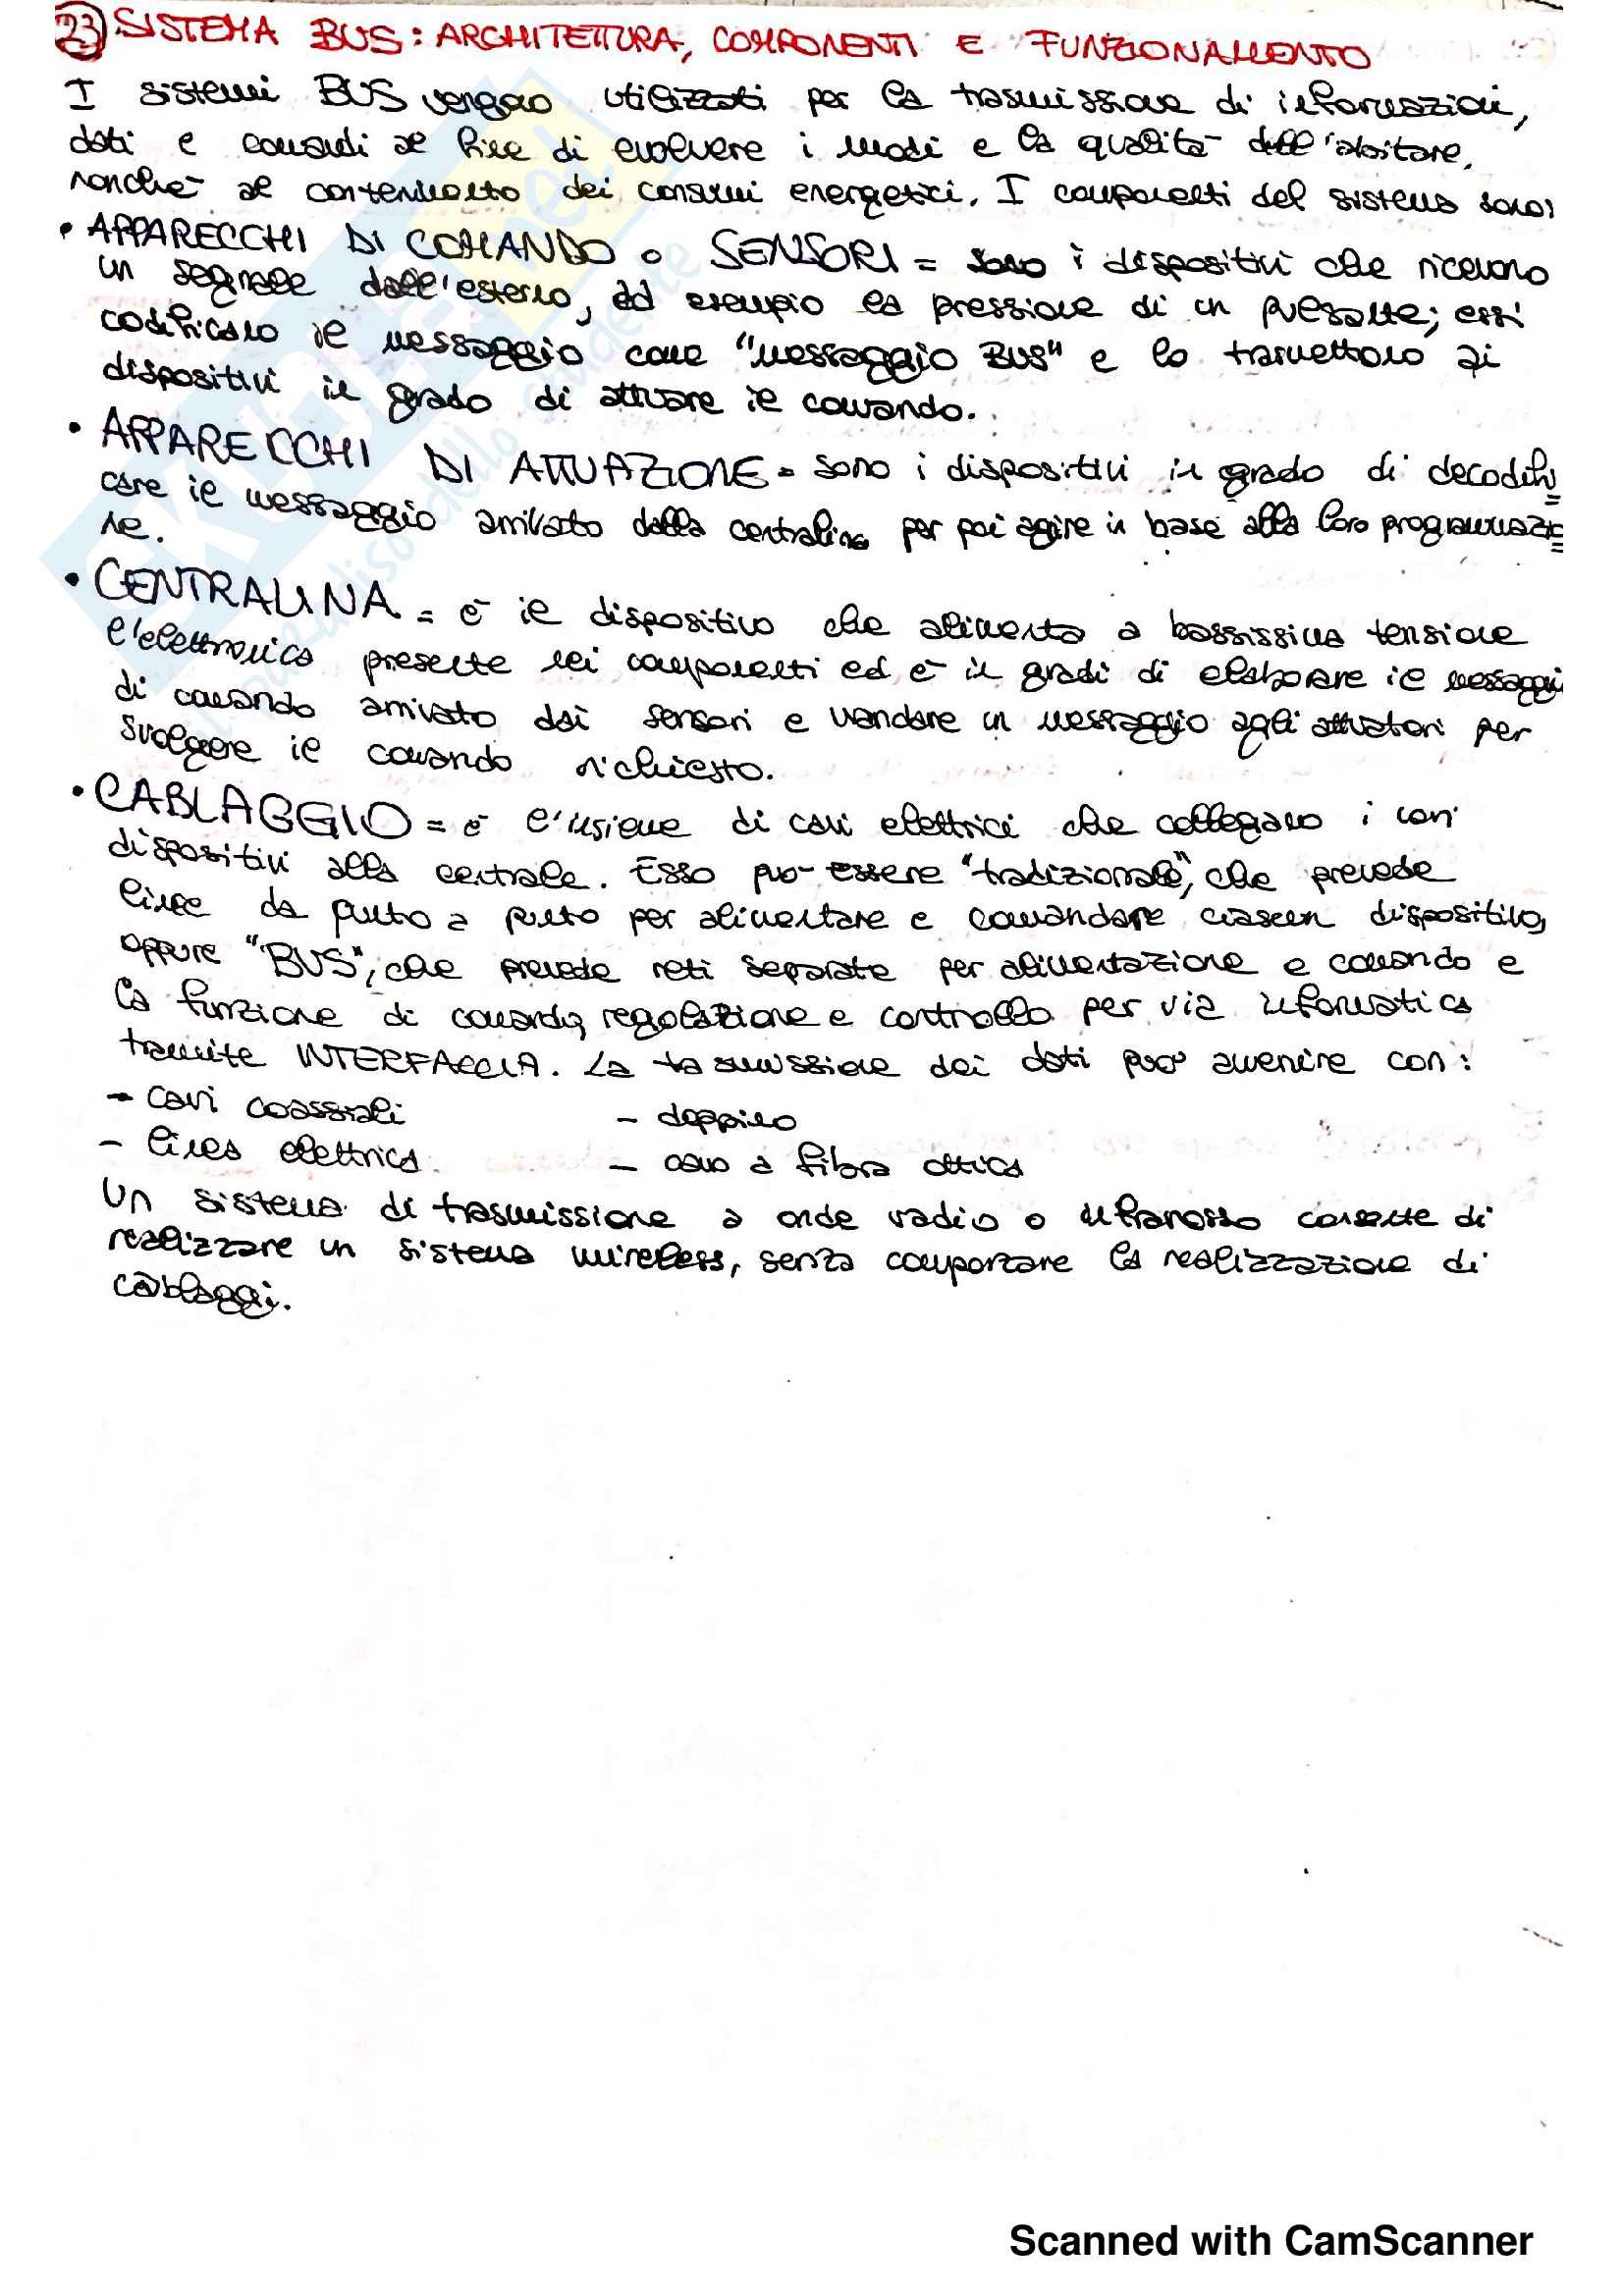 23 SISTEMA BUS: ARCHITETTURA, COMPONENTI E FUNZIONAMENTO
I sistemi BUS vengono utilizzati per la trasmissione di informazioni,
dati e comandi al fine di evolvere i modi e la qualità dell'abitare,
nonché al contenimento dei consumi energetici. I componenti del sistema sono:
• APPARECCHI DI COMANDO o SENSORI = sono i dispositivi che ricevono
un segnale dall'esterno, ad esempio la pressione di un pulsante; essi
codificano il messaggio come "messaggio BUS" e lo trasmettono ai
dispositivi in grado di attivare il comando.
• APPARECCHI DI ATTUAZIONE = sono i dispositivi in grado di decodifi
care il messaggio arrivato dalla centralina per poi agire in base alla loro programmazio
ne.
• CENTRALINA = è il dispositivo che alimenta a bassissima tensione
l'elettronica presente nei componenti ed è in gradi di elaborare il messaggi
di comando arrivato dai sensori e mandare un messaggio agli attuatori per
svolgere il comando richiesto.
• CABLAGGIO = è l'insieme di cavi elettrici che collegano i vari
dispositivi alla centrale. Esso può essere "tradizionale", che prevede
linee da punto a punto per alimentare e comandare ciascun dispositivo,
oppure "BUS", che prevede reti separate per alimentazione e comando e
la funzione di comando, regolazione e controllo per via informatica
tramite INTERFACCIA. La tasmissione dei dati può avvenire con:
- cavi coassiali - doppino
- linea elettrica - cavo a fibra ottica
Un sistema di trasmissione a onde radio o infrarosso consente di
realizzare un sistema wireless, senza comportare la realizzazione di
cablaggi.
Scanned with CamScanner